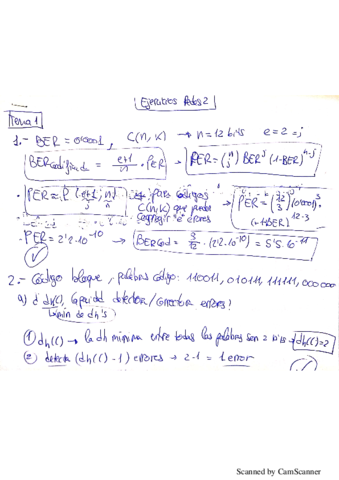 Ejercicios Redes 2
Tema 1
1.- BER = 0'0001, C(n,k) → n=12 bits e=2=j
BERcodificado = e+1/n · PER → PER = (n j) BER^j (1-BER)^n-j
PER ≈ P(e+1; n) → para códigos C(n,k) que puedan corregir "e" errores
(1-BER)^12-3
PER = 2'2·10^-10 → BERcod = 3/12 · (2'2·10^-10) = 5'5·
2.- Código bloque, palabras código: 110011, 010111, 111111, 000000
a) d dh(), capacidad detector/corrector errores?
① dh() → la dh mínima entre todas las palabras son 2 bits → dh()=2
② detecta (dh()-1) errores → 2-1 = 1 error
Scanned by CamScanner